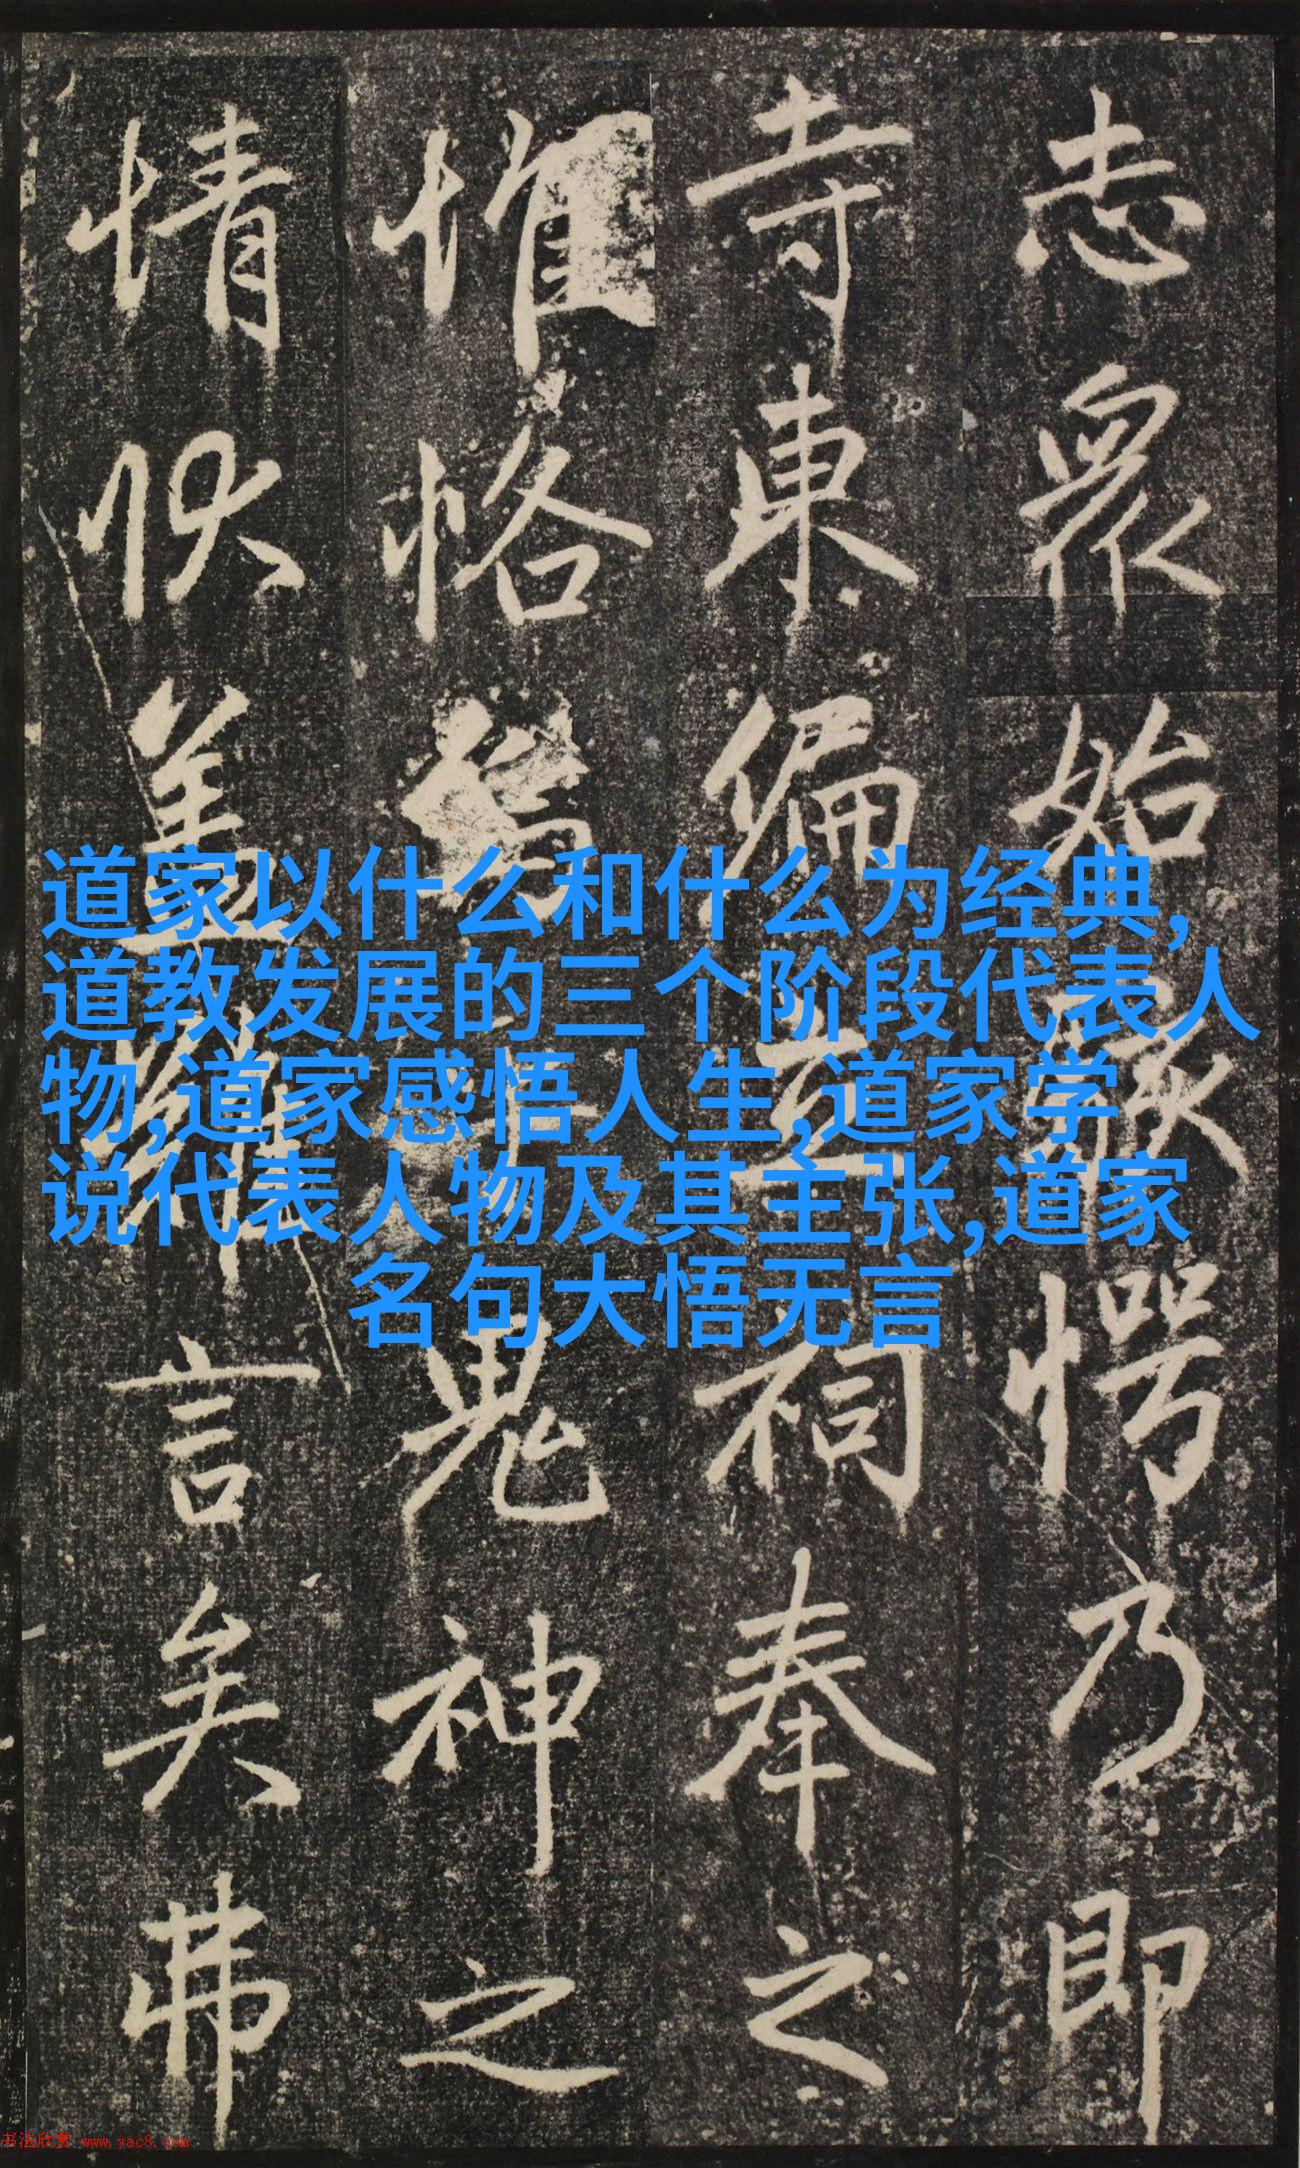 志眾始駭愕乃即
寺東編立祠奉之
惟恪鬼神之
情狀蓋難言矣弗
道家以什么和什么为经典,
道教发展的三个阶段代表人
物,道家感悟人生,道家学
说代表人物及其主张,道家
名句大悟无言
书法欣赏 www.yac8.com